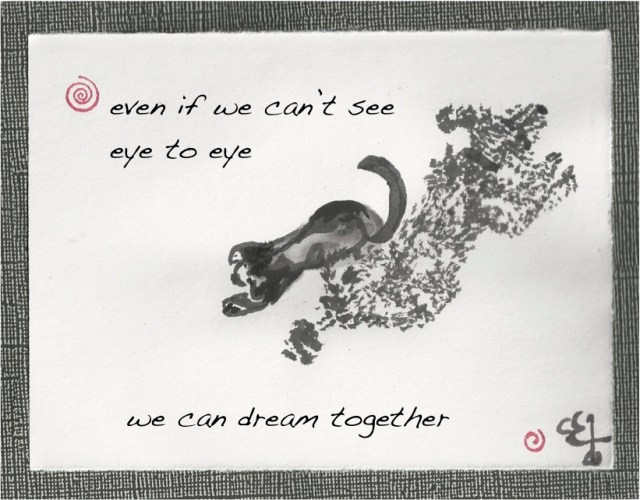 even if we can't see
eye to eye
we can dream together